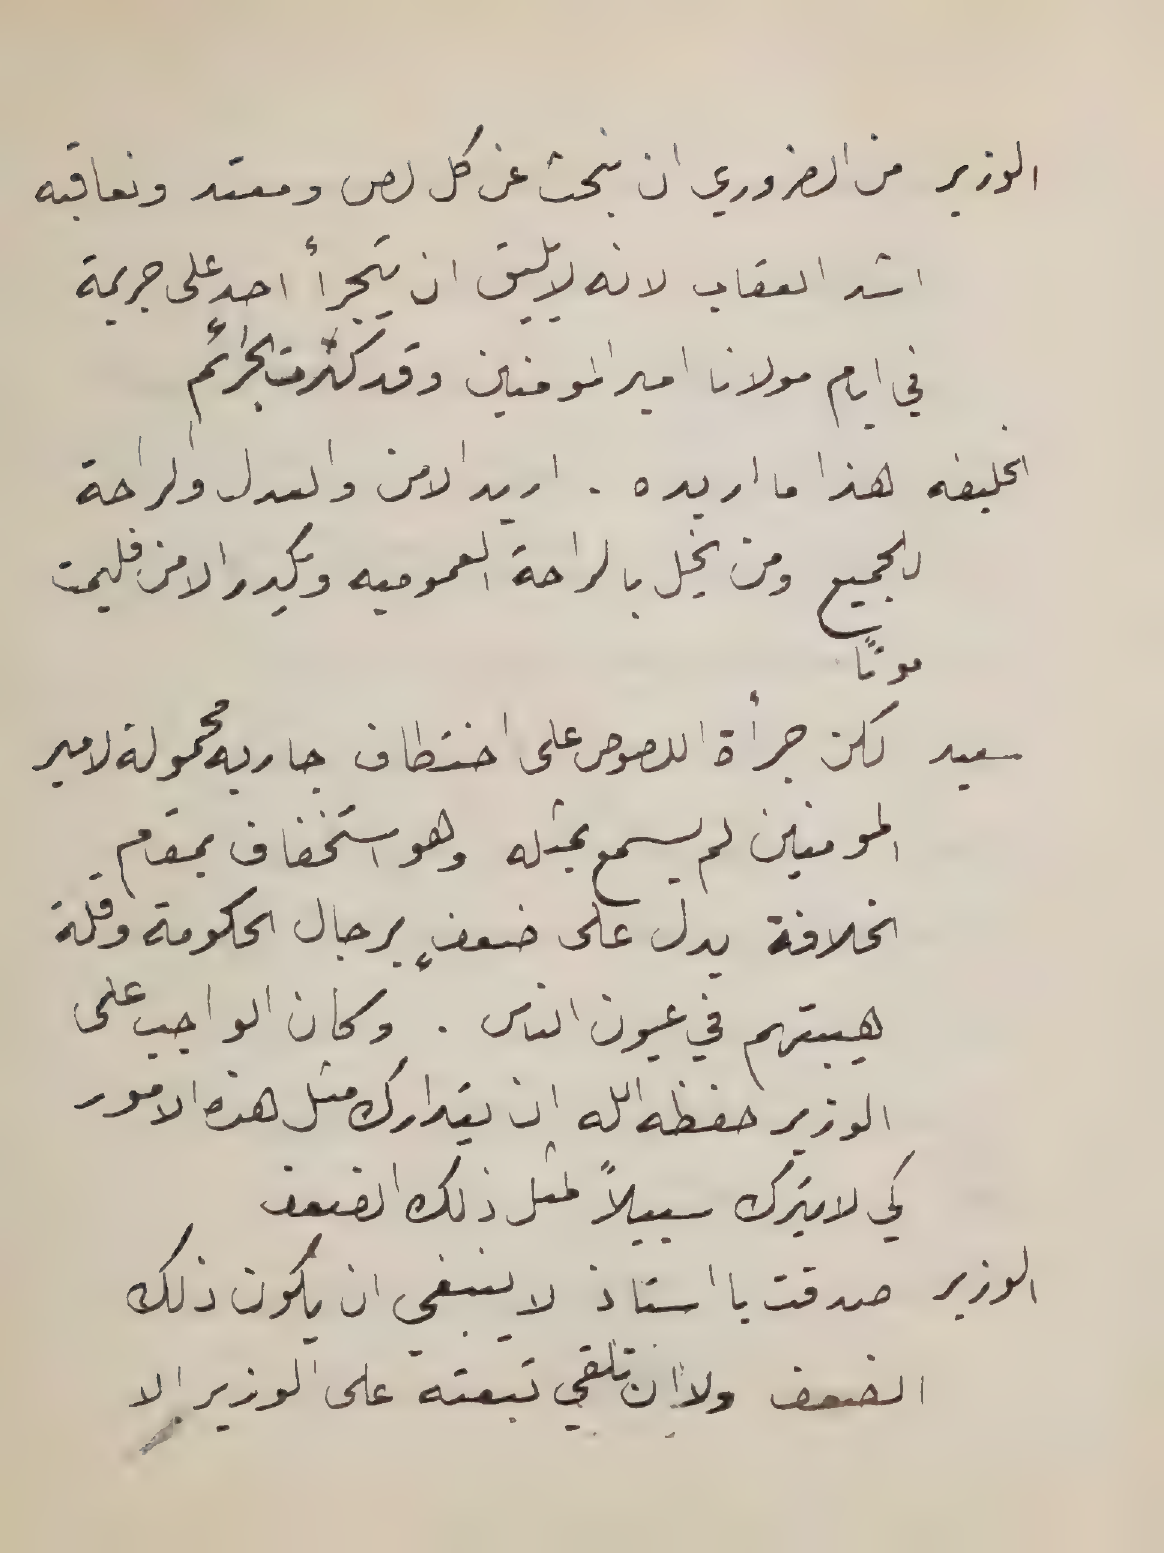 الوزير من الضروري ان نبحث عن كل لص ومعتد ونعاقبه
اشد العقاب لانه لا يليق ان يتجرأ احد على جريمة
في ايام مولانا امير المومنين وقد كثرت الجرائم
الخليفه هذا ما اريده . اريد الامن والعدل والراحة
للجميع ومن يخل بالراحة العموميه ويكدر الامن فليمت
موتًا
سعيد لكن جرأة اللصوص على اختطاف جاريه محمولة لامير
المومنين لم يسمع بمثله وهو استخفاف بمقام
الخلافة يدل على ضعفٍ برجال الحكومة وقلة
هيبتهم في عيون الناس . وكان الواجب على
الوزير حفظه الله ان يتدارك مثل هذه الامور
كي لا يترك سبيلاً لمثل ذلك الضعف
الوزير صدقت يا استاذ لا ينبغي ان يكون ذلك
الضعف ولا ان تلقي تبعته على الوزير الا